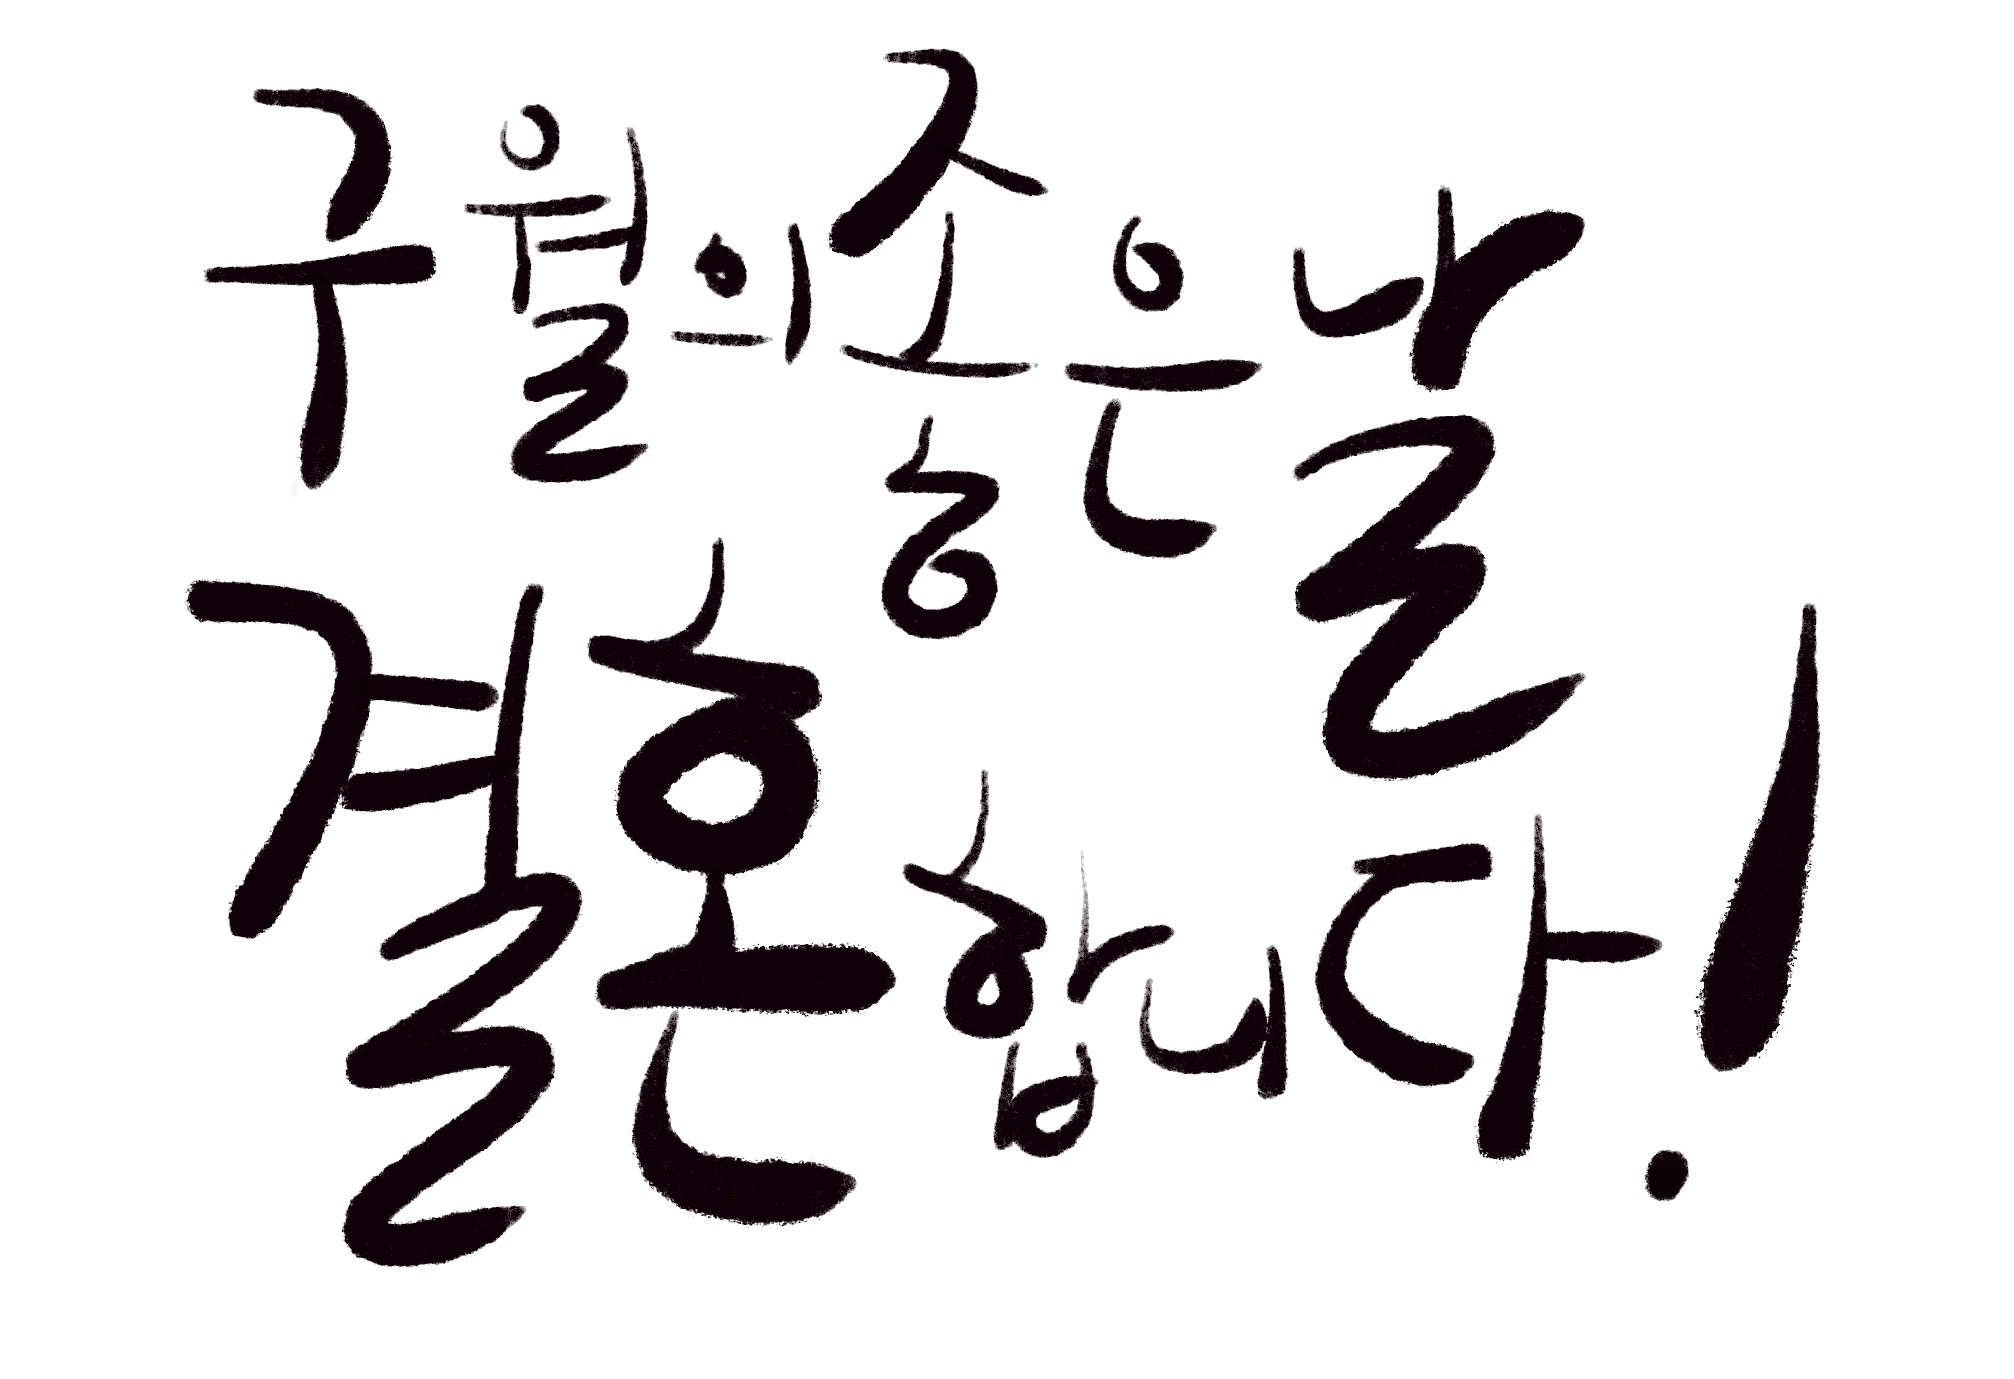 구월의 좋은날
결혼합니다!